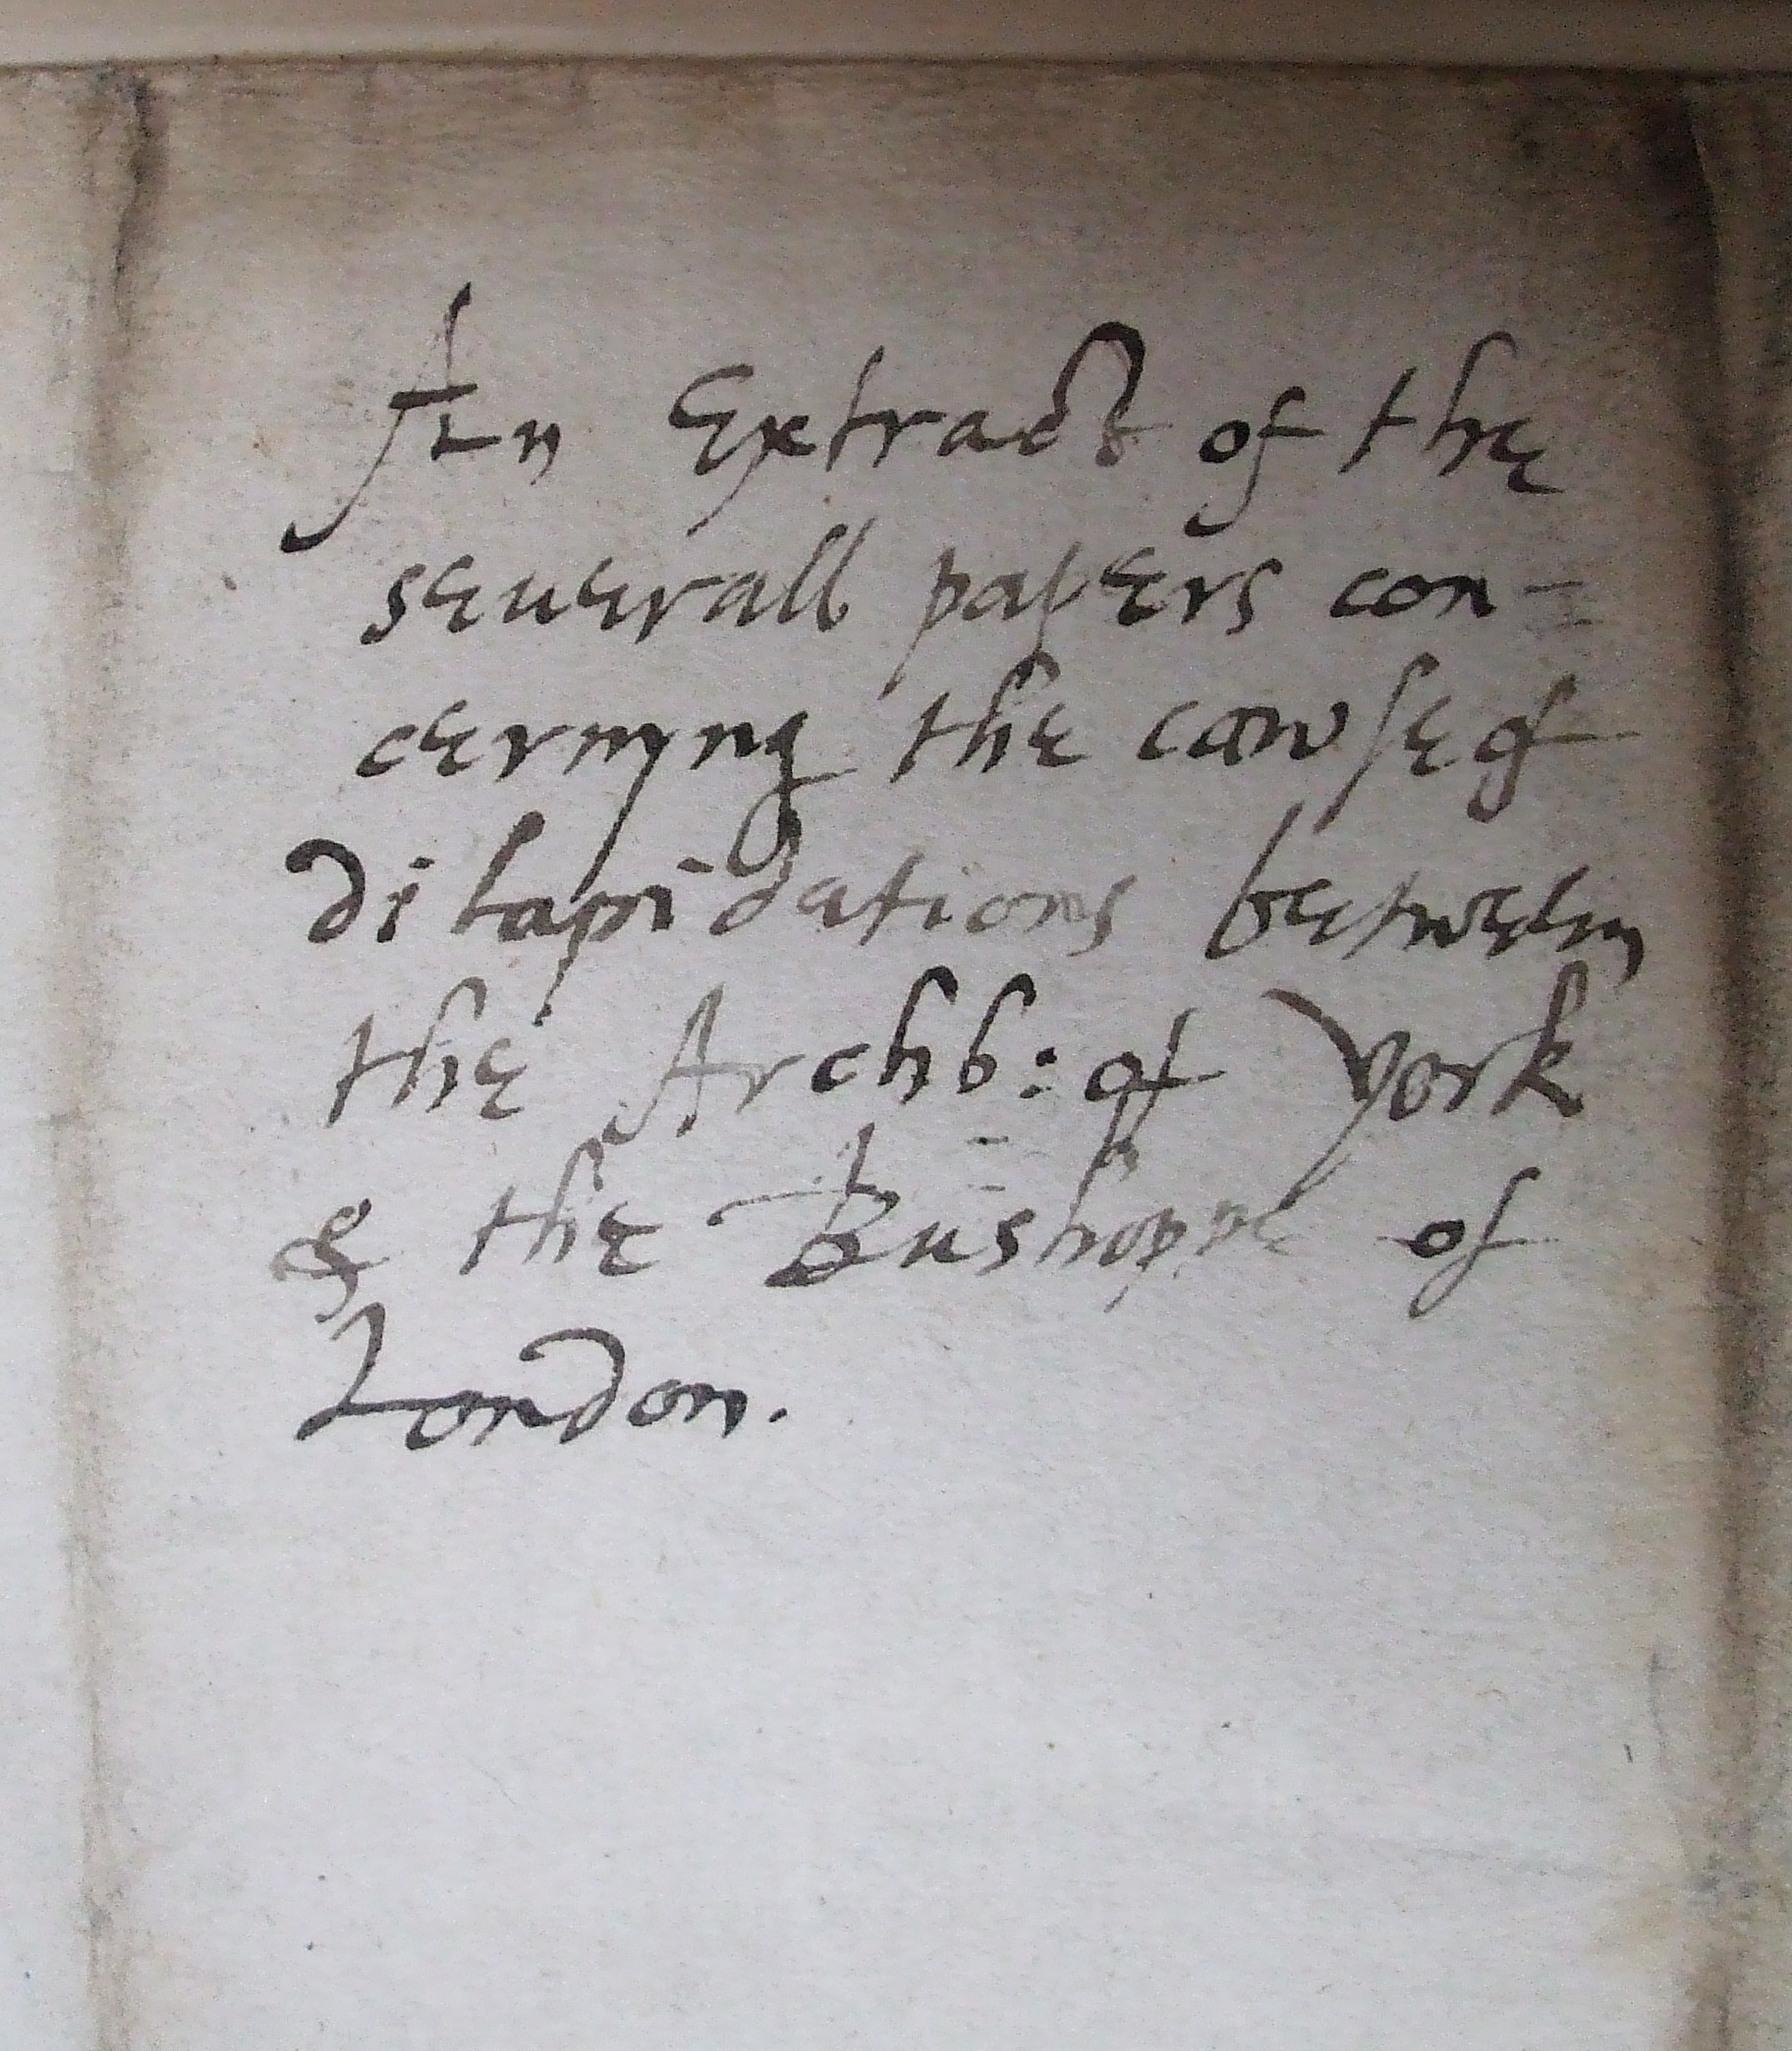 An Extract of the
seuerall papers con=
cernyng the cawse of
dilapidations betweein
the Archb: of York
& the Bushoppe of
London.